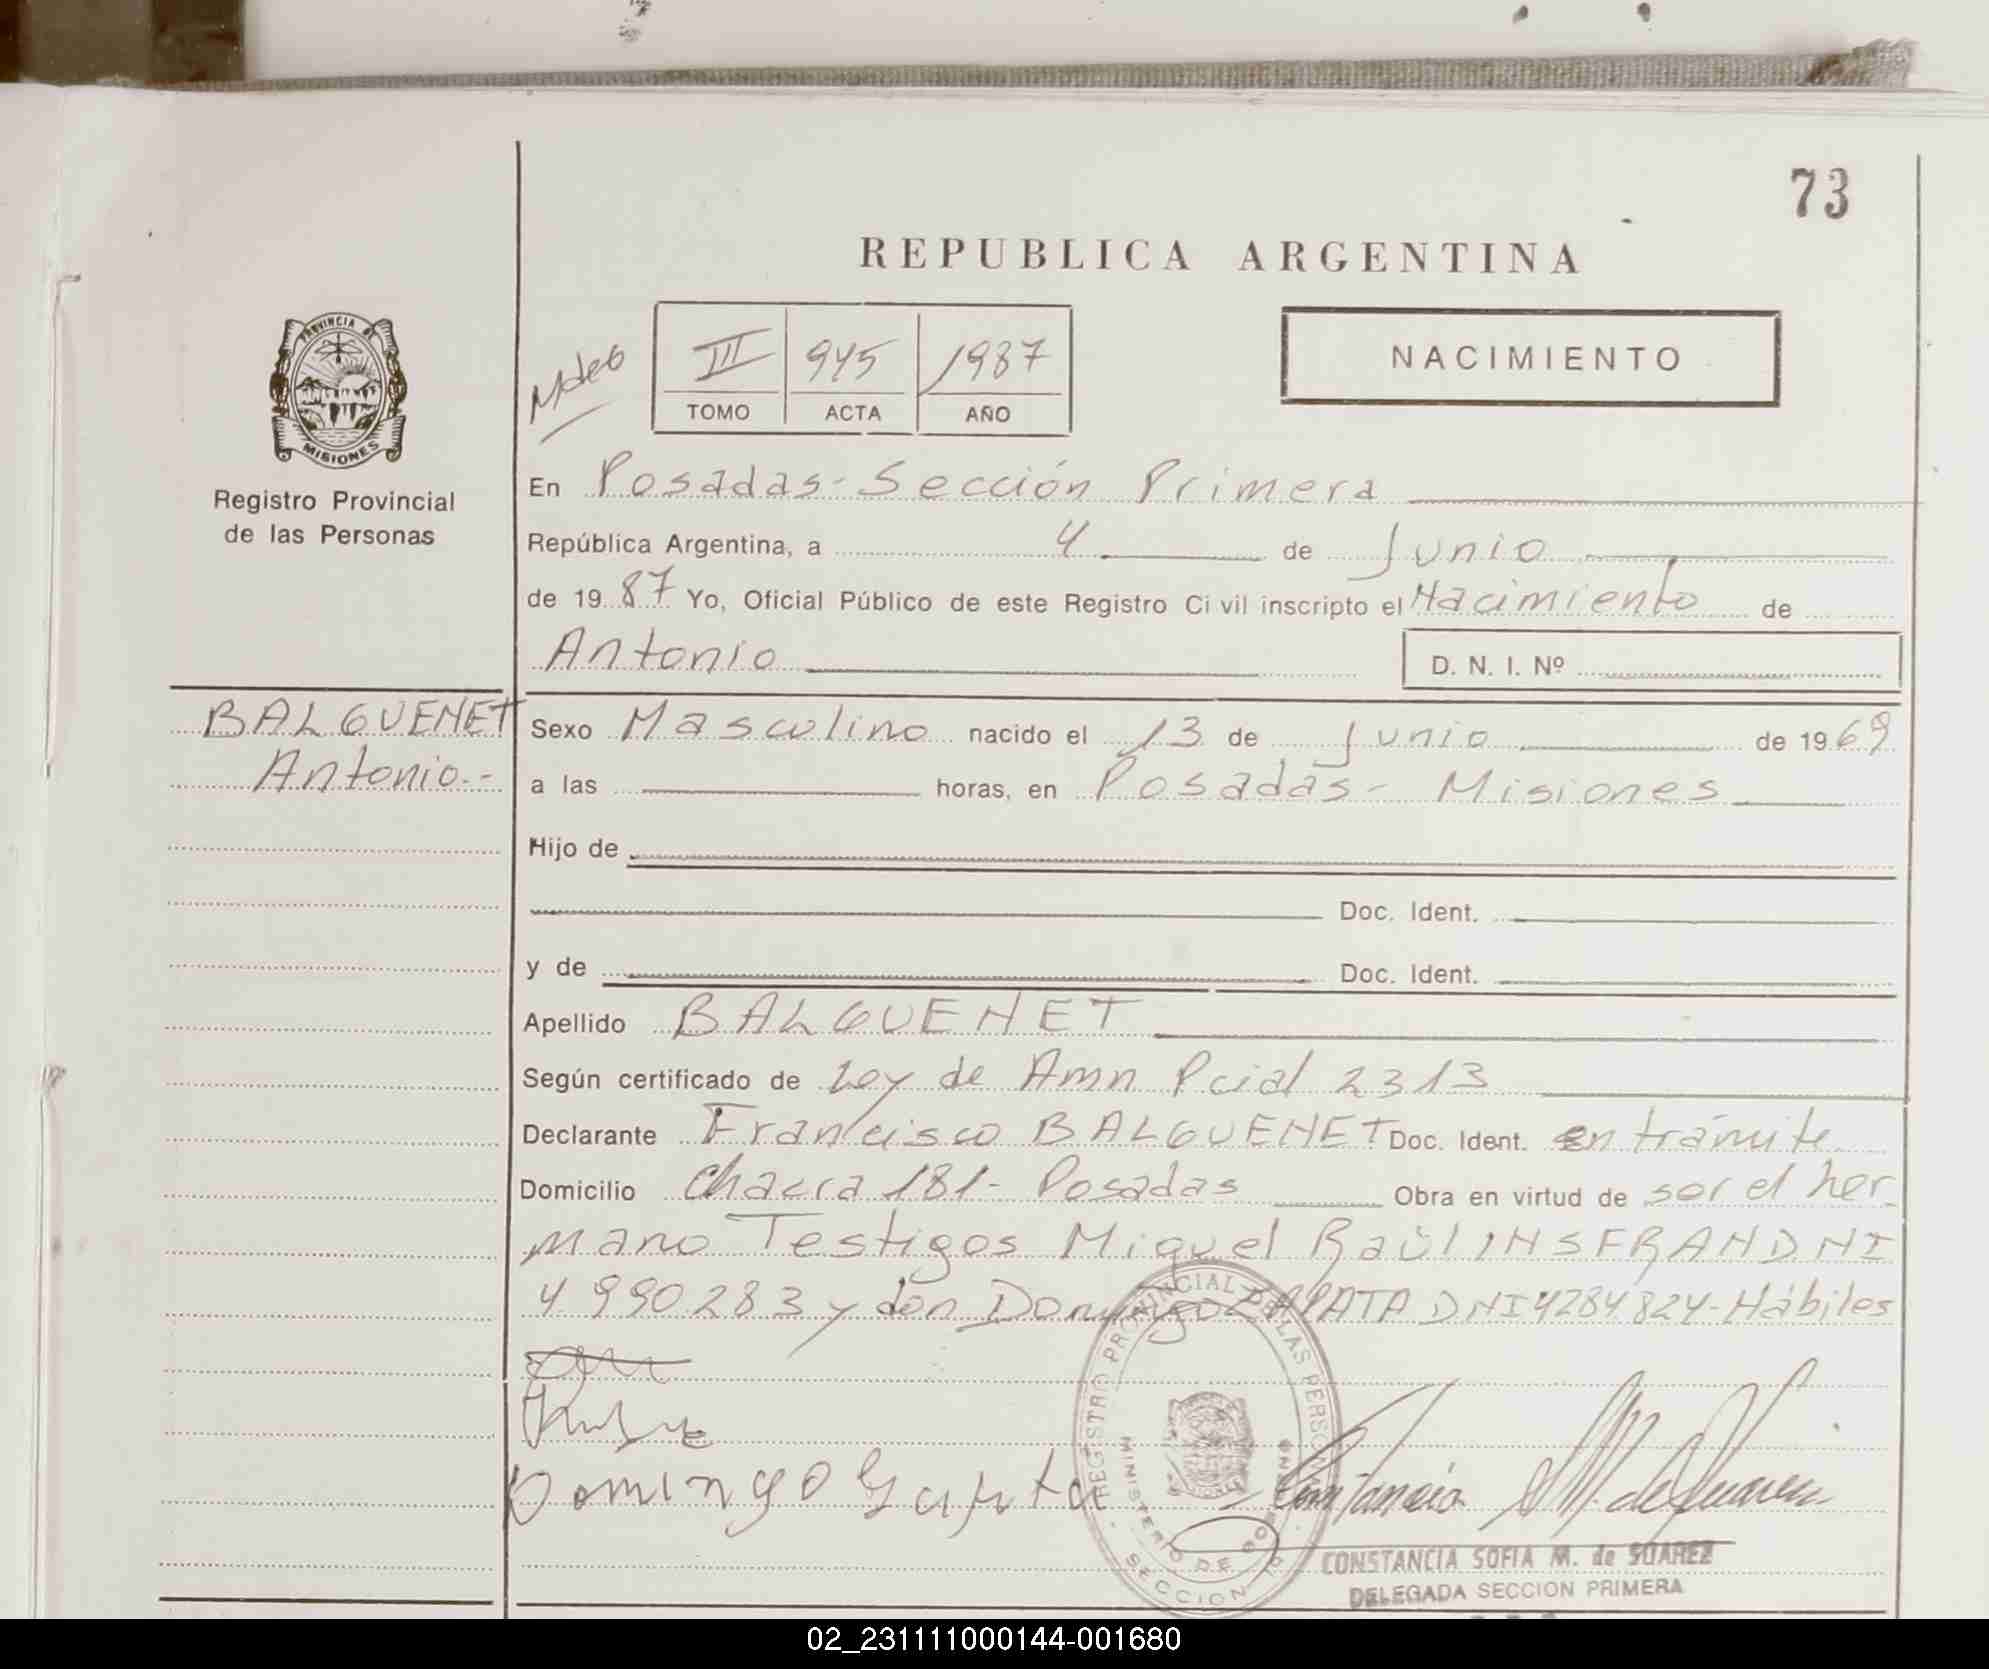 73
REPUBLICA ARGENTINA
PROVINCIA DE
MISIONES
Registro Provincial
de las Personas
III 945 1987
TOMO ACTA AÑO
NACIMIENTO
En Posadas - Sección Primera
República Argentina, a 4 de Junio
de 19 87 Yo, Oficial Público de este Registro Civil inscripto el Nacimiento de
Antonio D. N. I. Nº
BALGUENET
Antonio.-
Sexo Masculino nacido el 13 de Junio de 19 69
a las horas, en Posadas - Misiones
Hijo de
Doc. Ident.
y de Doc. Ident.
Apellido BALGUENET
Según certificado de Ley de Amn Pcial 2313
Declarante Francisco BALGUENET Doc. Ident. en trámite
Domicilio Chacra 181 - Posadas Obra en virtud de ser el her
mano Testigos Miguel Raúl INSFRAN DNI
4990283 y don Domingo ZAPATA DNI 4284824 - Hábiles
Domingo
REGISTRO PROVINCIAL DE LAS PERSONAS
MINISTERIO DE GOBIERNO
SECCION 1a
CONSTANCIA SOFIA M. de SUAREZ
DELEGADA SECCION PRIMERA
02_231111000144-001680